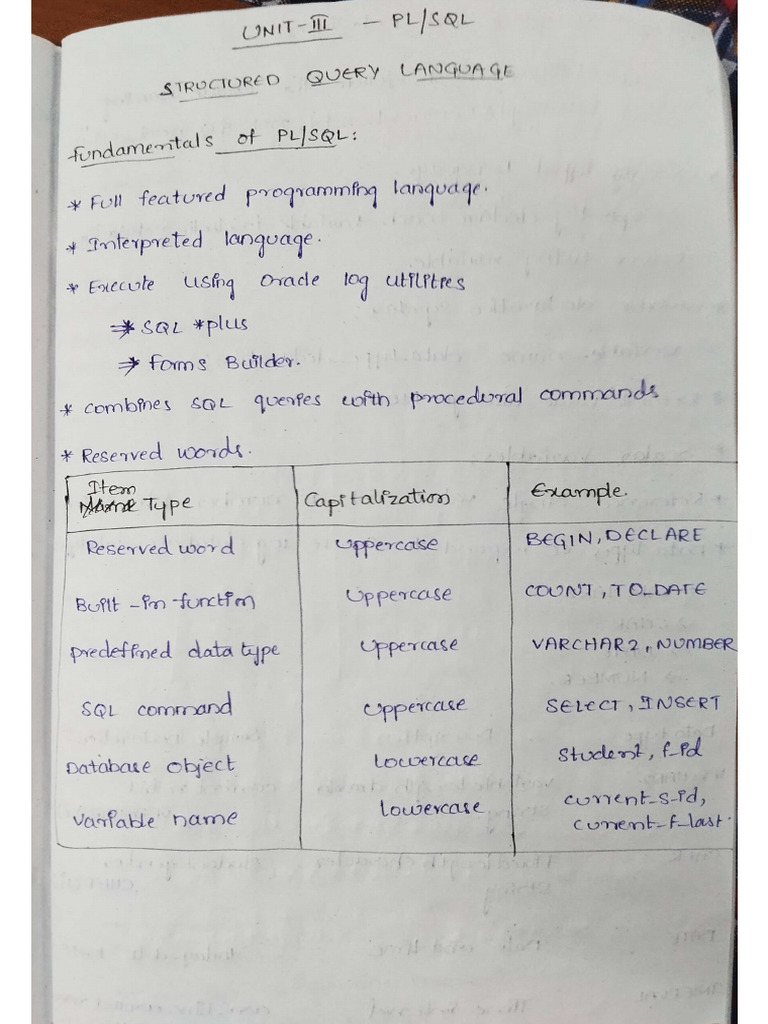 UNIT-III - PL/SQL
STRUCTURED QUERY LANGUAGE
Fundamentals of PL/SQL:
* Full featured programming language.
* Interpreted language.
* Execute using oracle log utilities
⇒ SQL *plus
⇒ forms Builder.
* combines SQL queries with procedural commands
* Reserved words.
Item Type | Capitalization | Example.
Reserved word | Uppercase | BEGIN, DECLARE
Built-in-function | Uppercase | COUNT, TO_DATE
predefined data type | Uppercase | VARCHAR2, NUMBER
SQL command | Uppercase | SELECT, INSERT
Database object | Lowercase | student, f_id
Variable name | Lowercase | current_s_id,
current_f_last.